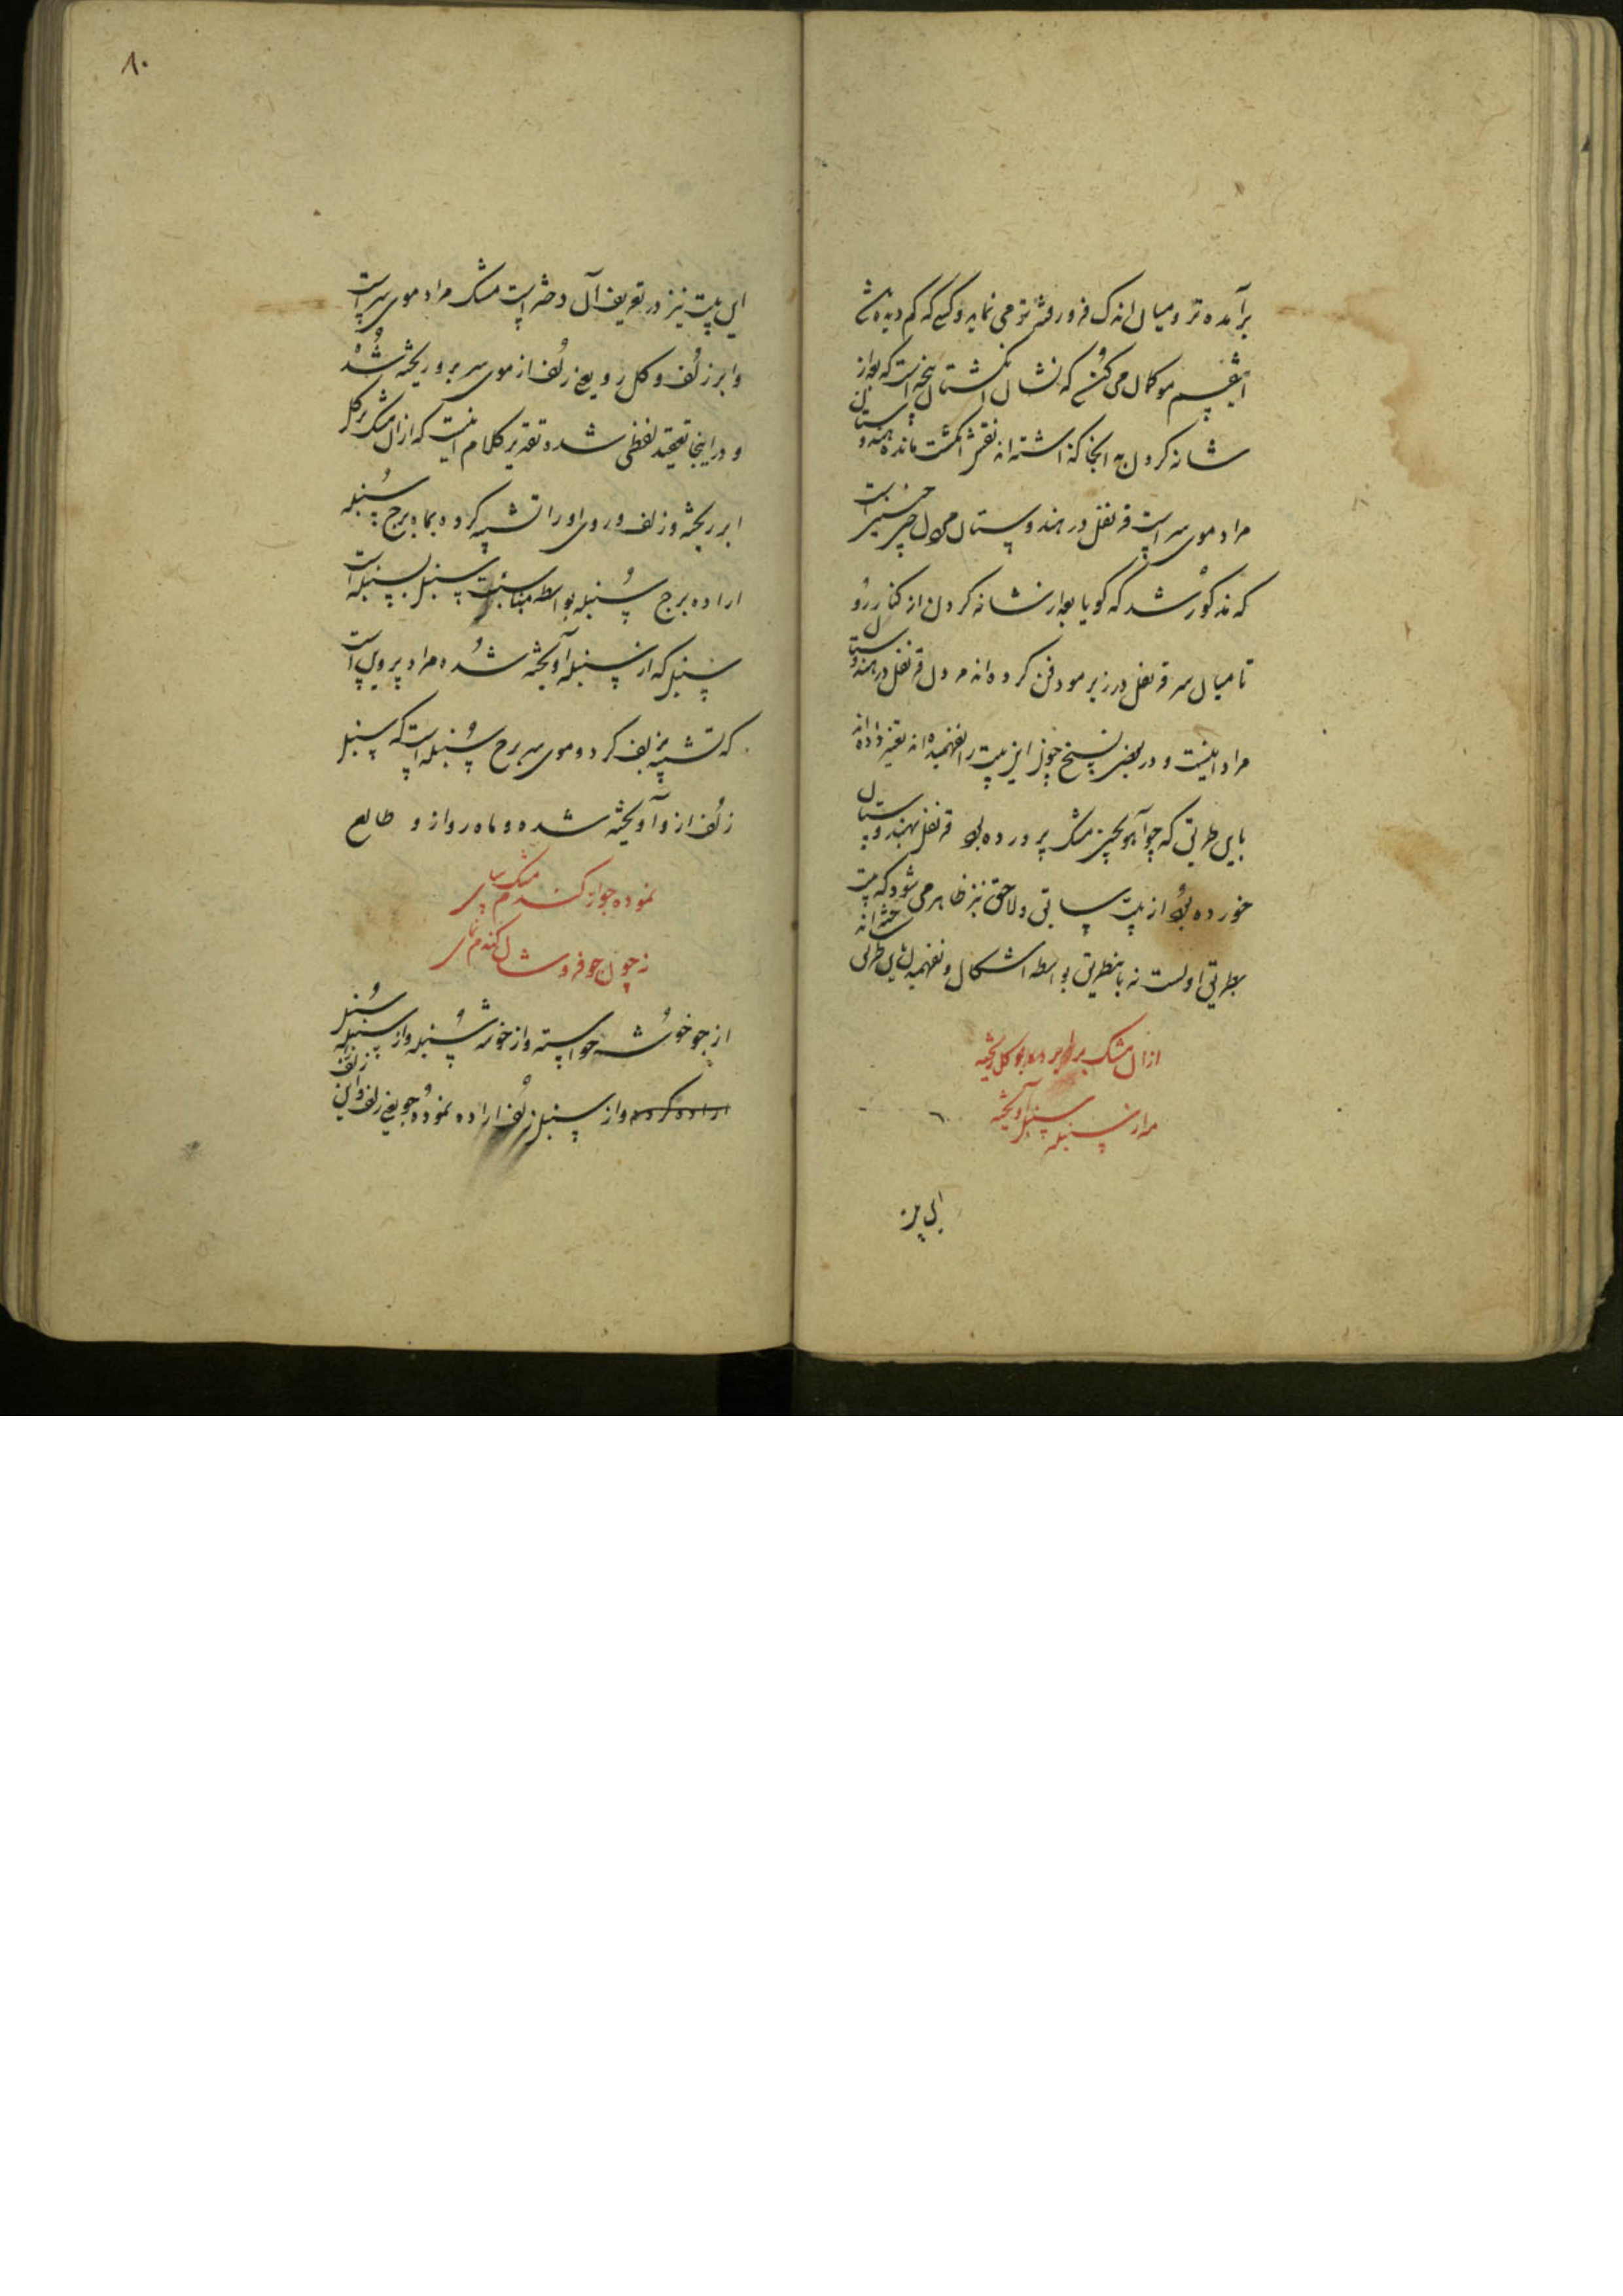 برآمده تر و میان اندک فرو رفته تر می نماید و کسی که کم دیده باشد
اینقسم مو گمان می کند که نشان انگشتان پنجه است که بعد از
شانه کردن به انجا گذاشته اند نقش انگشت مانده هندوستان
مراد موی سر است قرنفل در هندوستان
که مذکور شد که گویا بعد از شانه کردن از کنار رو
تا میان سر قرنفل در زیر مو دفن کرده اند قرنفل در هندوستان
مراد اینست و در بعضی نسخ چون این بیت را نفهمیده اند تغییر داده اند
باین طریق که چو آهو بچین مشک پرورده بود قرنفل بهندوستان
خورده بود از بیت سابق و لاحق نیز ظاهر می شود که بیت
بطریق اولست نه باینطریق بواسطه اشکال و نفهمیدن باین طریق ساخته اند
ازان مشک بر گل ریخته
مه از سنبله سنبل آویخته
این بیت
۸۰
این بیت نیز در تعریف آن دختر است مشک مراد موی سر است
و ابر زلف و گل رو یعنی زلف از موی سر برو ریخته شده
و در اینجا تعقید لفظی شده تقدیر کلام اینست که ازان مشک بر گل
ابر ریخته و زلف و روی او را تشبیه کرده بماه برج سنبله
اراده برج سنبله بواسطه مناسبت سنبل بسنبله است
سنبل که از سنبله آویخته شده مراد پروین است
که تشبیه بزلف کرد و موی سر برج سنبله است که سنبل
زلف از و آویخته شده و ماه رو از و طالع
نموده جو از گندم مشک سای
نه چون جو فروشان گندم نمای
از جو خوشه خواسته و از خوشه سنبله و از سنبله سنبل
اراده کرده و از سنبل زلف اراده نموده جو یعنی زلف و این زلف